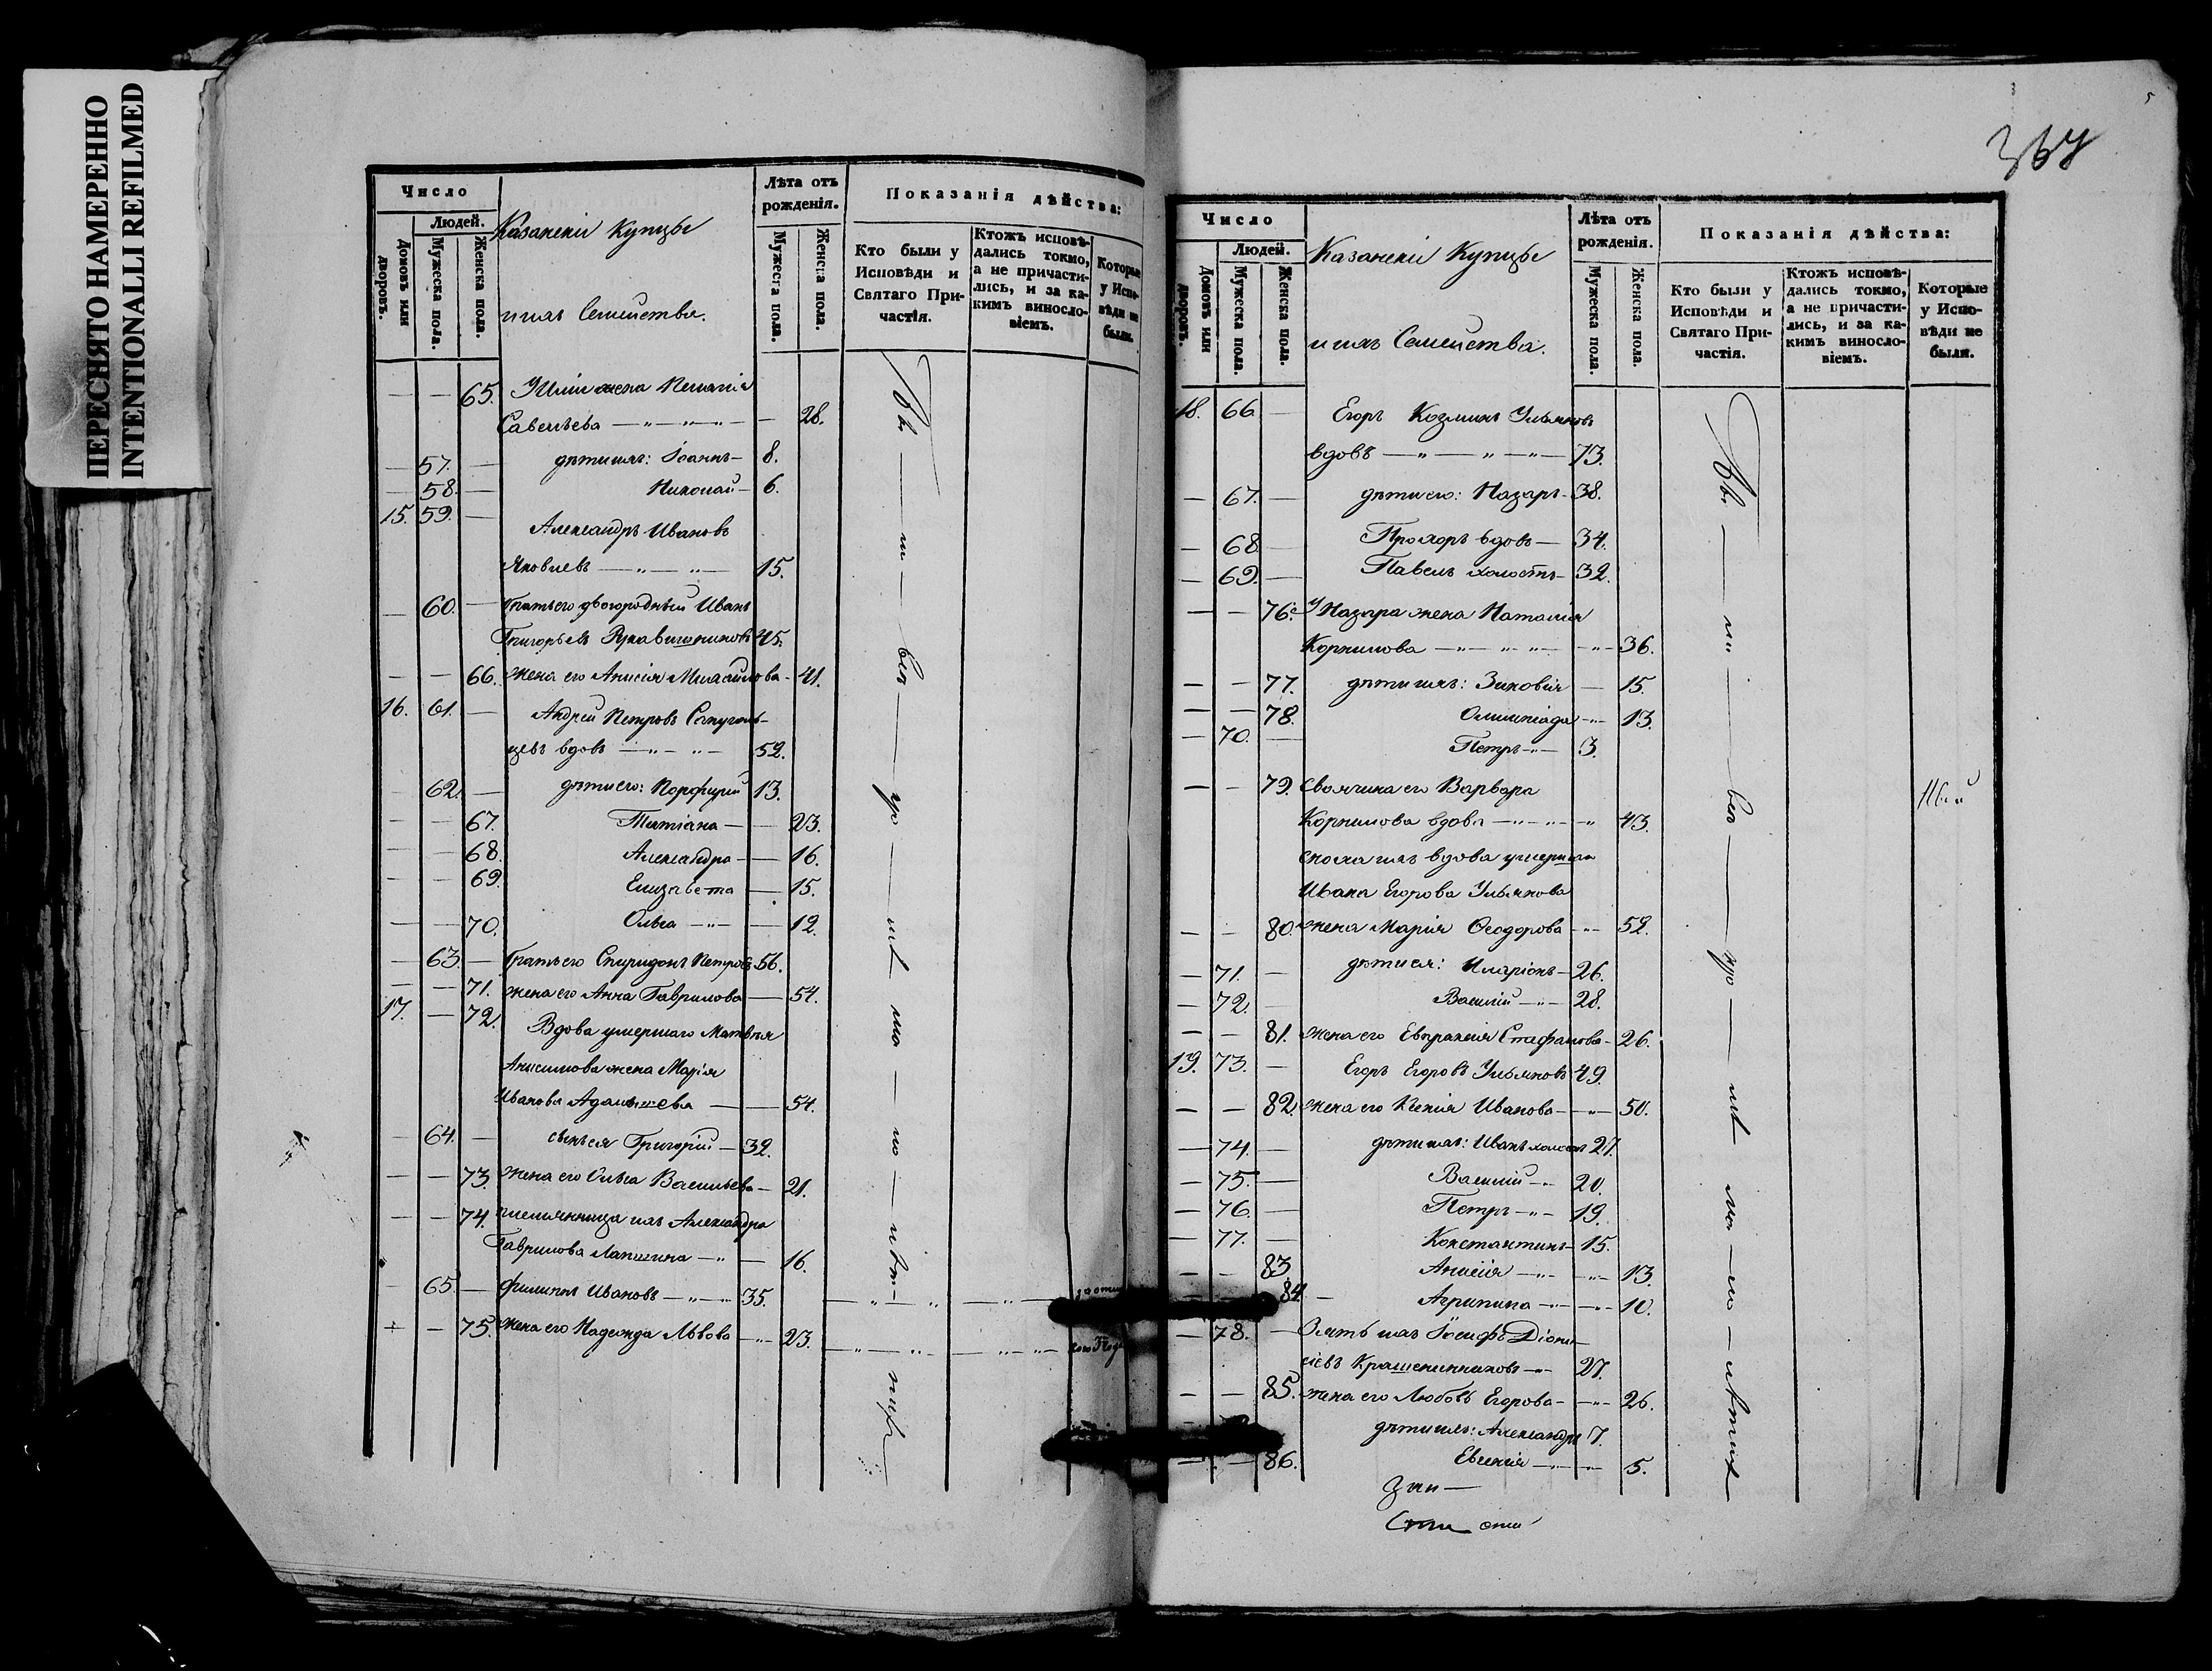 ПЕРЕСНЯТО НАМЕРЕННО
INTENTIONALLI REFILMED
Число
Людей.
Домовъ или дворовъ.
Мужеска пола.
Женска пола.
Казанскіи Купцы
и ихъ Семейства.
Лѣта отъ рожденія.
Мужеска пола.
Женска пола.
Показанія дѣйства:
Кто были у Исповѣди и Святаго Причастія.
Ктожъ исповѣдались токмо, а не причастились, и за какимъ винословіемъ.
Которые у Исповѣди не были.
— — 65. жена
Савельева — 28.
— 57. — дѣти ихъ: Іоаннъ — 8.
— 58. — Николай — 6.
15. 59. — Александръ Ивановъ
Яковлевъ — 15.
— 60. — братъ его двоюродный Иванъ
Григорьевъ Рукавишниковъ 45.
— — 66. жена его Анисія Михайлова — 41.
16. 61. — Андрей Петровъ
цевъ вдовъ — 52.
— 62. — дѣти его: Порфирий 13.
— — 67. Татіана — 23.
— — 68. Александра — 16.
— — 69. Елизавета — 15.
— — 70. Ольга — 12.
— 63. — братъ его Спиридонъ Петровъ 56.
— — 71. жена его Анна Гаврилова — 54.
17. — 72. Вдова умершаго Матвѣя
Анисимова жена Марія
Иванова — 54.
— 64. — сынъ ея Григорій — 32.
— — 73. жена его Ольга Васильева — 21.
— — 74. племянница ихъ Александра
Гаврилова Лапшина — 16.
— 65. — Филиппъ Ивановъ — 35.
— 75. жена его Надежда Львова — 23.
367
Число
Людей.
Домовъ или дворовъ.
Мужеска пола.
Женска пола.
Казанскіи Купцы
и ихъ Семейства.
Лѣта отъ рожденія.
Мужеска пола.
Женска пола.
Показанія дѣйства:
Кто были у Исповѣди и Святаго Причастія.
Ктожъ исповѣдались токмо, а не причастились, и за какимъ винословіемъ.
Которые у Исповѣди не были.
18. 66. — Егоръ Козминъ Ульяновъ
вдовъ — 73.
— 67. — дѣти его: Назаръ — 38.
— 68. — Прохоръ вдовъ — 34.
— 69. — Павелъ холостъ — 32.
— — 76. У Назара жена Наталія
Корнилова — 36.
— — 77. дѣти ихъ: Зиновія — 15.
— — 78. Олимпіада — 13.
— 70. — Петръ — 3.
— — 79. Своячина его Варвара
Корнилова вдова — 43.
сноха ихъ вдова умершаго
Ивана Егорова Ульянова
— — 80. жена Марія Ѳеодорова — 52.
— 71. — дѣти ея: Иларіонъ — 26.
— 72. — Василій — 28.
— — 81. жена его Евпраксія Стефанова — 26.
19. 73. — Егоръ Егоровъ Ульяновъ 49.
— — 82. жена его Ксенія Иванова — 50.
— 74. — дѣти ихъ: Иванъ холостъ 27.
— 75. — Василій — 20.
— 76. — Петръ — 19.
— 77. — Константинъ — 15.
— — 83. Анисія — 13.
84. — Агрипина — 10.
— 78. — Зять ихъ Іосифъ Діони-
сіевъ Крашенинниковъ — 27.
— — 85. жена его Любовь Егорова — 26.
дѣти ихъ: Александръ 7.
— — 86. Евгенія — 5.